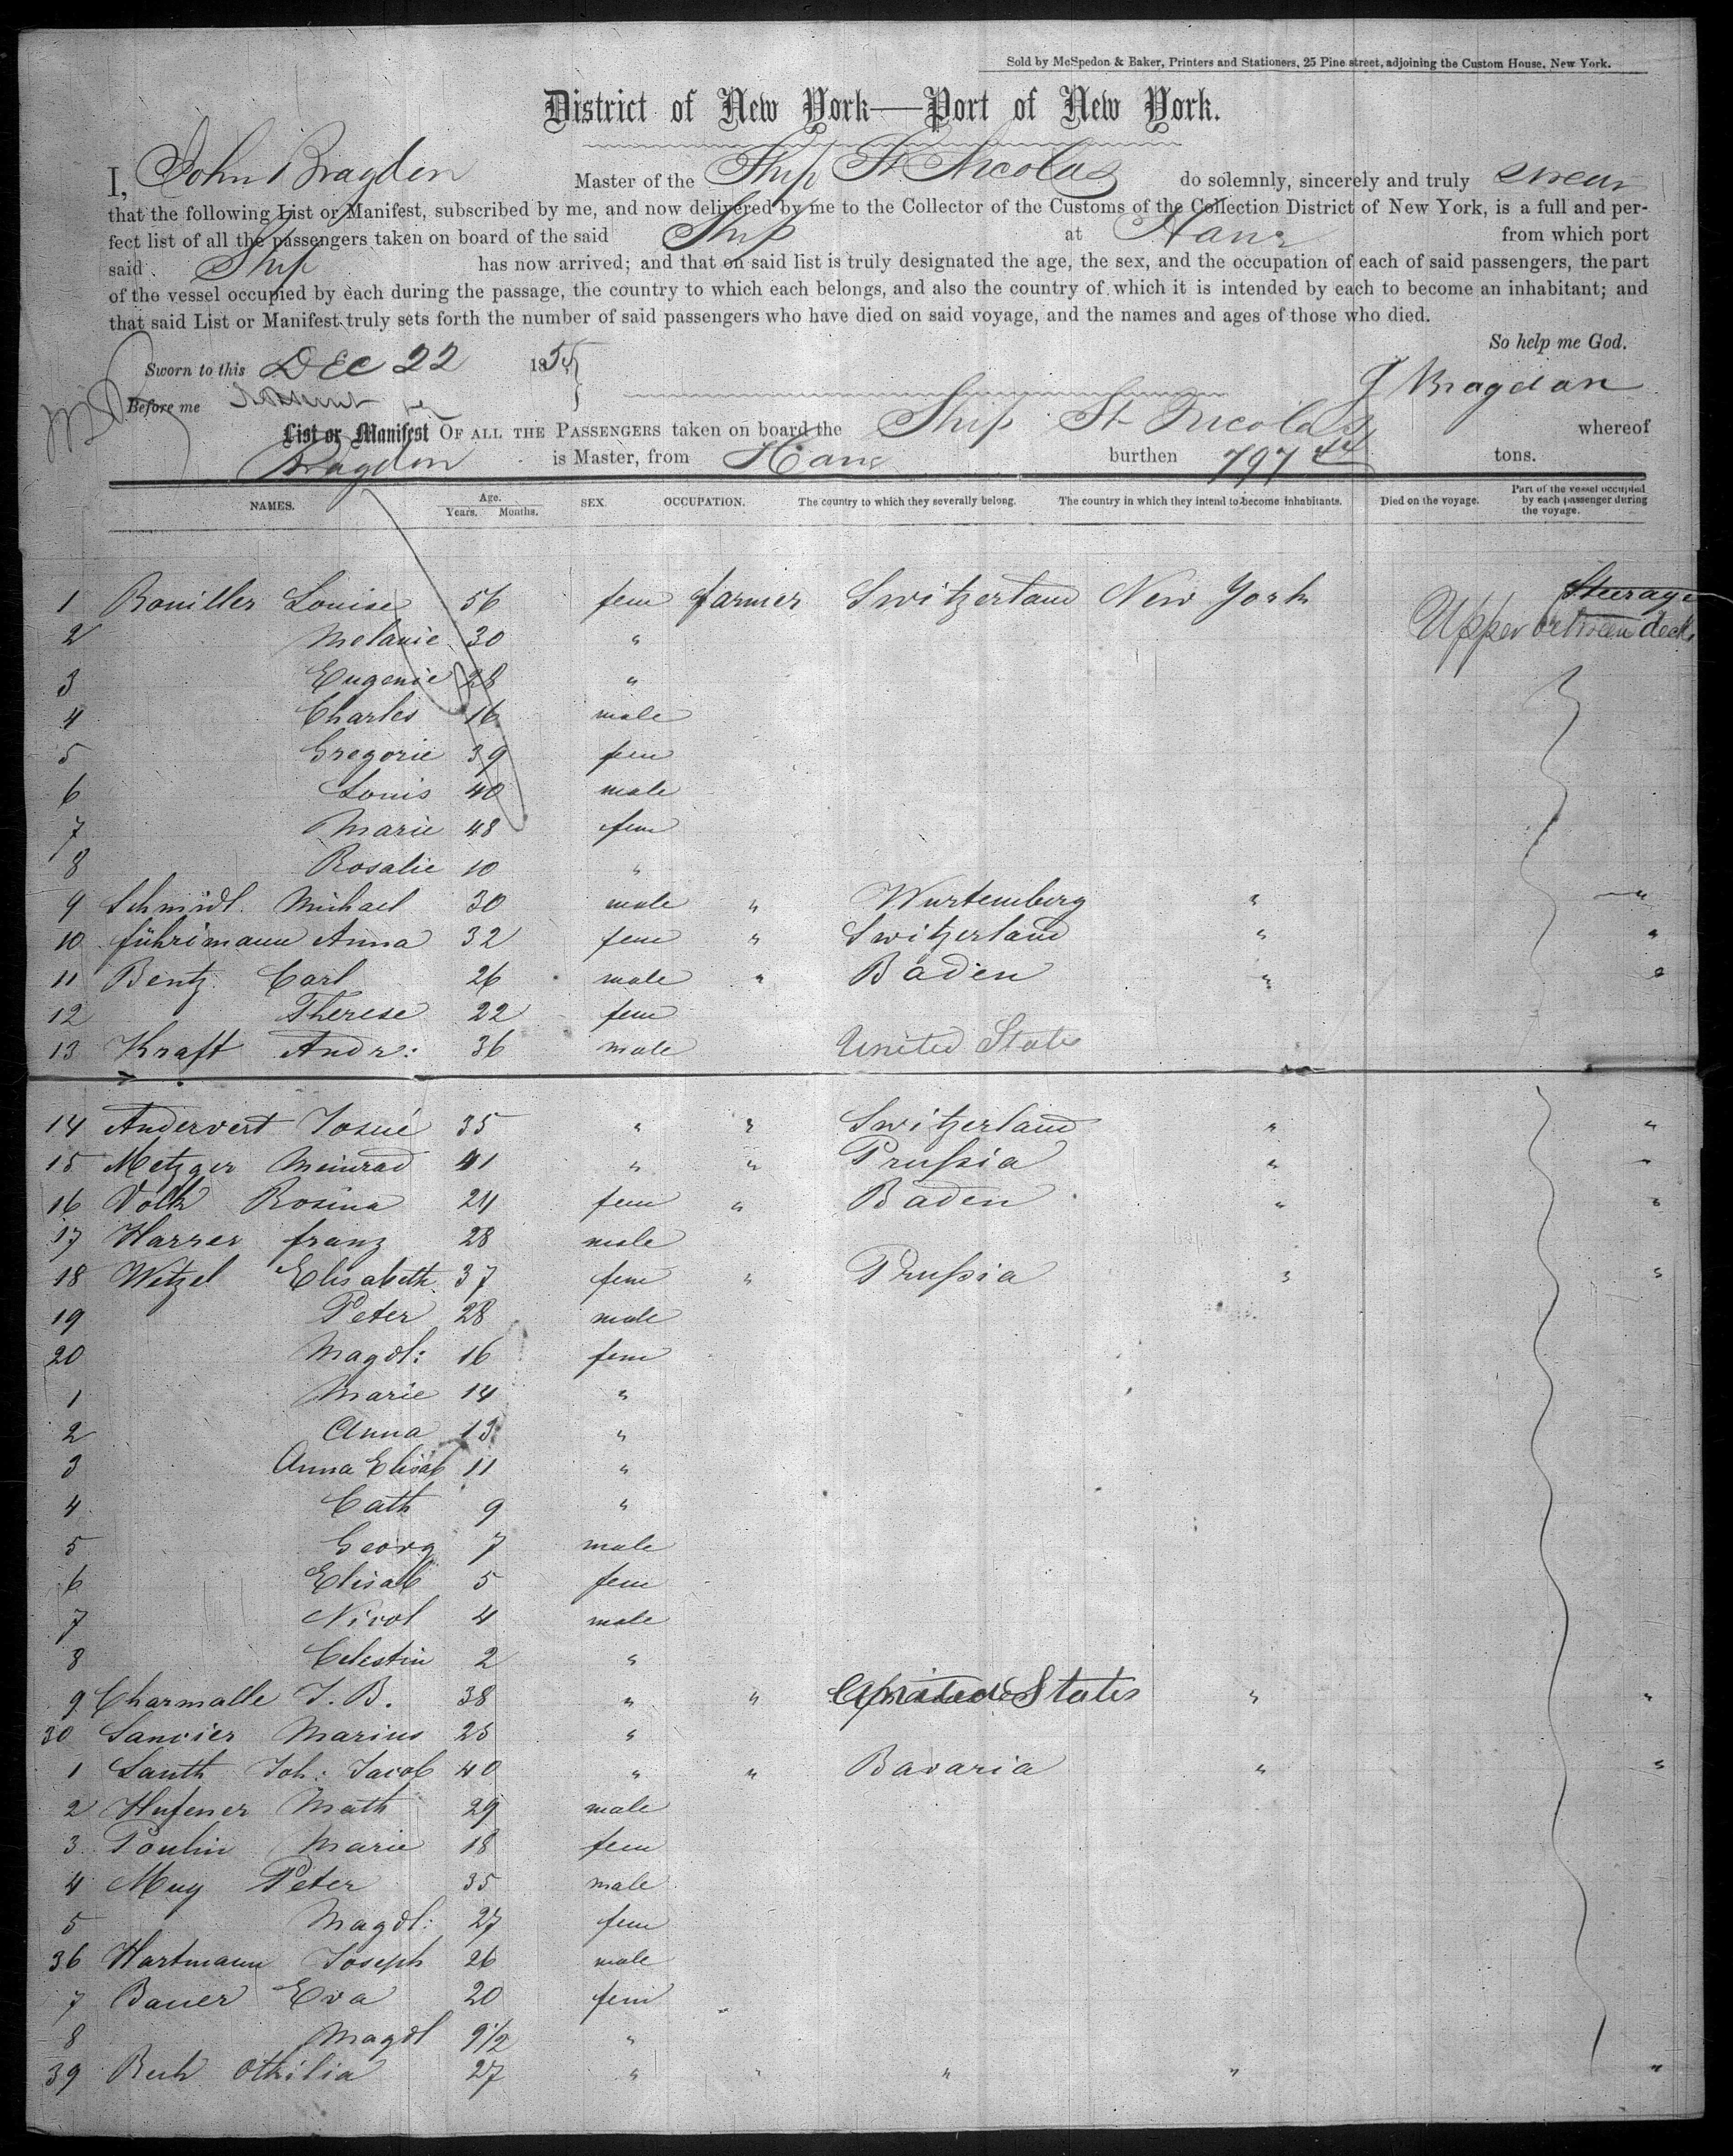 Sold by McSpedon & Baker, Printers and Stationers, 25 Pine street, adjoining the Custom House, New York.
District of New York—Port of New York.
I, John Bragdon Master of the Ship St Nicolas do solemnly, sincerely and truly swear
that the following List or Manifest, subscribed by me, and now delivered by me to the Collector of the Customs of the Collection District of New York, is a full and per-
fect list of all the passengers taken on board of the said Ship at Havre from which port
said Ship has now arrived; and that on said list is truly designated the age, the sex, and the occupation of each of said passengers, the part
of the vessel occupied by each during the passage, the country to which each belongs, and also the country of which it is intended by each to become an inhabitant; and
that said List or Manifest truly sets forth the number of said passengers who have died on said voyage, and the names and ages of those who died.
So help me God.
Sworn to this Dec 22 1855
J Bragdon
Before me
List or Manifest OF ALL THE PASSENGERS taken on board the Ship St Nicolas whereof
Bragdon is Master, from Havre burthen 797 tons.
NAMES. Age. Years. Months. SEX. OCCUPATION. The country to which they severally belong. The country in which they intend to become inhabitants. Died on the voyage. Part of the vessel occupied by each passenger during the voyage.
1 Bouiller Louise 56 fem farmer Switzerland New York Steerage
2 Melanie 30 " Upper between decks
3 Eugenie 28 "
4 Charles 16 male
5 Gregorie 39 fem
6 Louis 40 male
7 Marie 48 fem
8 Rosalie 10 "
9 Schmidl Michael 30 male " Wurtemberg " "
10 führimann Anna 32 fem " Switzerland " "
11 Bentz Carl 26 male " Baden " "
12 Therese 22 fem
13 Kraft Andr: 36 male United States
14 Andervert Josué 35 " " Switzerland " "
15 Metzger Meinrad 41 " " Prussia " "
16 Volk Rosina 24 fem " Baden " "
17 Harrer franz 28 male
18 Wetzel Elisabeth 37 fem " Prussia " "
19 Peter 28 male
20 Magdl: 16 fem
1 Marie 14 "
2 Anna 13 "
3 Anna Elisab 11 "
4 Cath 9 "
5 Georg 7 male
6 Elisab 5 fem
7 Nicol 4 male
8 Celestin 2 "
9 Charmalle J. B. 38 " " United States " "
30 Sancier Marius 25 "
1 Lauth Joh: Jacob 40 " " Bavaria " "
2 Hufener Math 29 male
3 Poulin Marie 18 fem
4 Muy Peter 35 male
5 Magdl: 27 fem
36 Hartmann Joseph 26 male
7 Bauer Eva 20 fem
8 Magdl 9½ "
39 Othilia 27 " " " " "